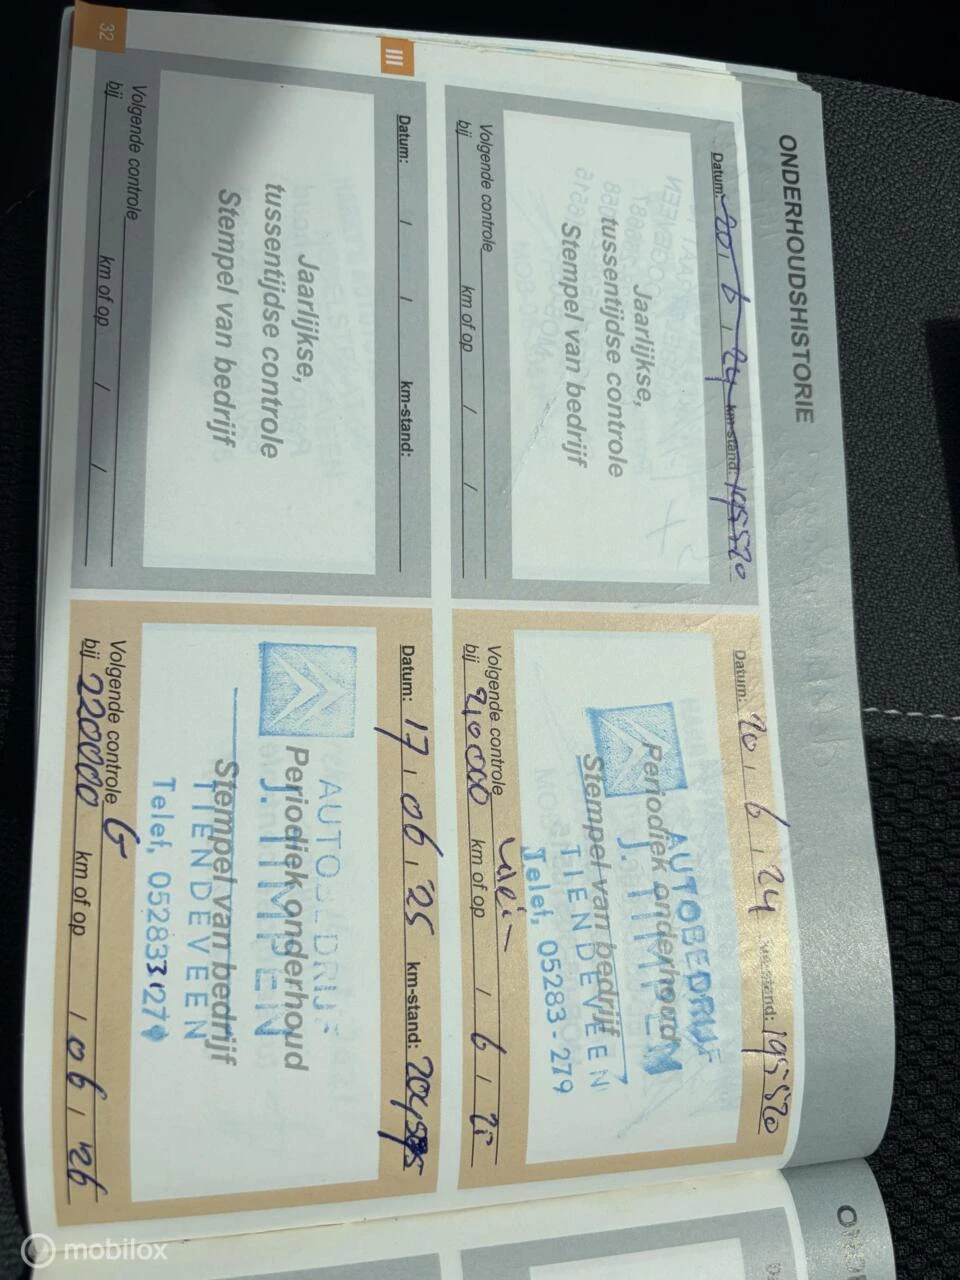 ONDERHOUDSHISTORIE
Datum: 20, 6, 24 km-stand: 195520
Jaarlijkse,
tussentijdse controle
Stempel van bedrijf
Volgende controle
bij km of op / /
Datum: 20, 6, 24 km-stand: 195520
AUTOBEDRIJF
Periodiek onderhoud
J. TIMPEN
Stempel van bedrijf
TIENDEVEEN
Telef, 05283-279
Volgende controle
bij km of op , 6, 25
III
Datum: / / km-stand:
Jaarlijkse,
tussentijdse controle
Stempel van bedrijf
Volgende controle
bij km of op / /
Datum: 17, 06, 25 km-stand:
AUTOBEDRIJF
Periodiek onderhoud
J. TIMPEN
Stempel van bedrijf
TIENDEVEEN
Telef, 0528331279
Volgende controle G
bij 220000 km of op , 06, 26
32
mobilox